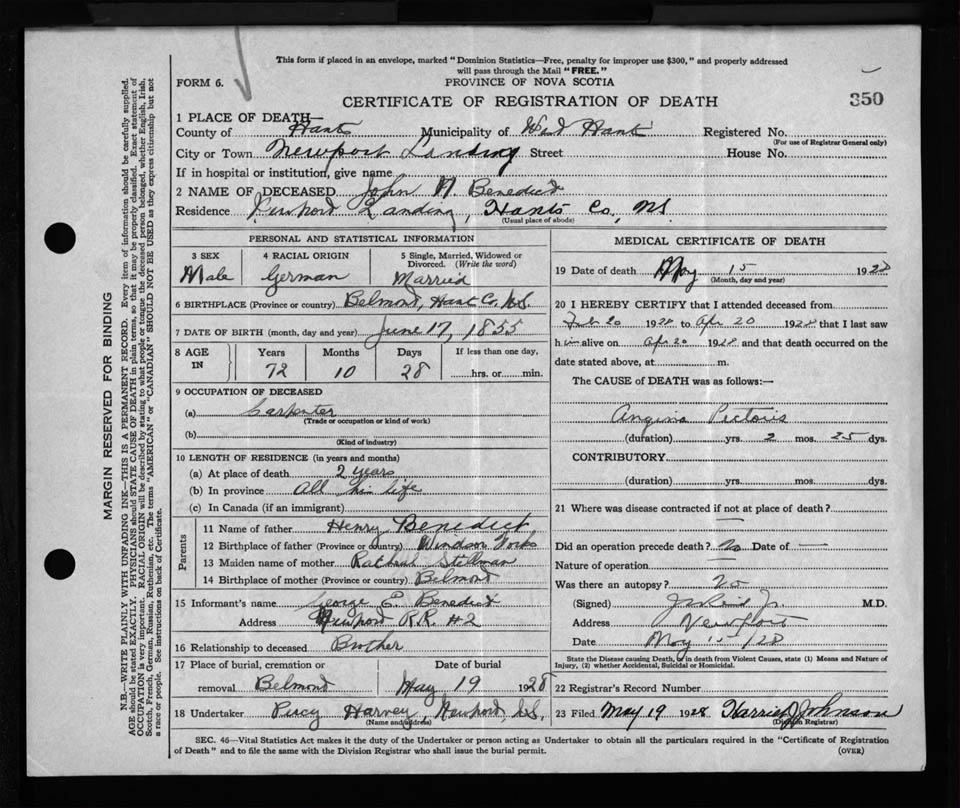 This form if placed in an envelope, marked "Dominion Statistics—Free, penalty for improper use $300," and properly addressed
will pass through the Mail "FREE."
FORM 6.
PROVINCE OF NOVA SCOTIA
CERTIFICATE OF REGISTRATION OF DEATH
350
1 PLACE OF DEATH—
County of Hants Municipality of West Hants Registered No.
(For use of Registrar General only)
City or Town Newport Landing Street House No.
If in hospital or institution, give name
2 NAME OF DECEASED John N Benedict
Residence Newport Landing, Hants Co, NS
(Usual place of abode)
PERSONAL AND STATISTICAL INFORMATION
3 SEX
Male
4 RACIAL ORIGIN
German
5 Single, Married, Widowed or
Divorced. (Write the word)
Married
6 BIRTHPLACE (Province or country) Belmont, Hants Co. N.S
7 DATE OF BIRTH (month, day and year) June 17, 1855
8 AGE IN
Years Months Days If less than one day,
72 10 28 hrs. or min.
9 OCCUPATION OF DECEASED
(a) Carpenter
(Trade or occupation or kind of work)
(b)
(Kind of industry)
10 LENGTH OF RESIDENCE (in years and months)
(a) At place of death 2 years
(b) In province All his life
(c) In Canada (if an immigrant)
Parents
11 Name of father Henry Benedict
12 Birthplace of father (Province or country) Windsor Forks
13 Maiden name of mother Rachael Stillman
14 Birthplace of mother (Province or country) Belmont
15 Informant's name George E. Benedict
Address Newport R.R. #2
16 Relationship to deceased Brother
17 Place of burial, cremation or Date of burial
removal Belmont May 19 1928
18 Undertaker Percy Harvey Newport N.S.
(Name and address)
MEDICAL CERTIFICATE OF DEATH
19 Date of death May 15 1928
(Month, day and year)
20 I HEREBY CERTIFY that I attended deceased from
Feb 20 1928 to Apr 20 1928 that I last saw
him alive on Apr 20 1928 and that death occurred on the
date stated above, at m.
The CAUSE of DEATH was as follows:—
Angina Pectoris
(duration) yrs. 2 mos. 25 dys.
CONTRIBUTORY
(duration) yrs. mos. dys.
21 Where was disease contracted if not at place of death?
—
Did an operation precede death? No Date of —
Nature of operation —
Was there an autopsy? No
(Signed) M.D.
Address Newport
Date May 15/28
State the Disease causing Death, or in death from Violent Causes, state (1) Means and Nature of
Injury, (2) whether Accidental, Suicidal or Homicidal.
22 Registrar's Record Number
23 Filed May 19 1928 Johnson
(Division Registrar)
SEC. 46—Vital Statistics Act makes it the duty of the Undertaker or person acting as Undertaker to obtain all the particulars required in the "Certificate of Registration
of Death" and to file the same with the Division Registrar who shall issue the burial permit.
(OVER)
MARGIN RESERVED FOR BINDING
N.B.—WRITE PLAINLY WITH UNFADING INK—THIS IS A PERMANENT RECORD. Every item of information should be carefully supplied.
AGE should be stated EXACTLY. PHYSICIANS should STATE CAUSE OF DEATH in plain terms, so that it may be properly classified. Exact statement of
OCCUPATION is very important. RACIAL ORIGIN will be described by stating to what people or tongue the deceased person belonged, whether English, Irish,
Scotch, French, German, Russian, Ruthenian, etc. The terms "AMERICAN" or "CANADIAN" SHOULD NOT BE USED as they express citizenship but not
a race or people. See instructions on back of Certificate.